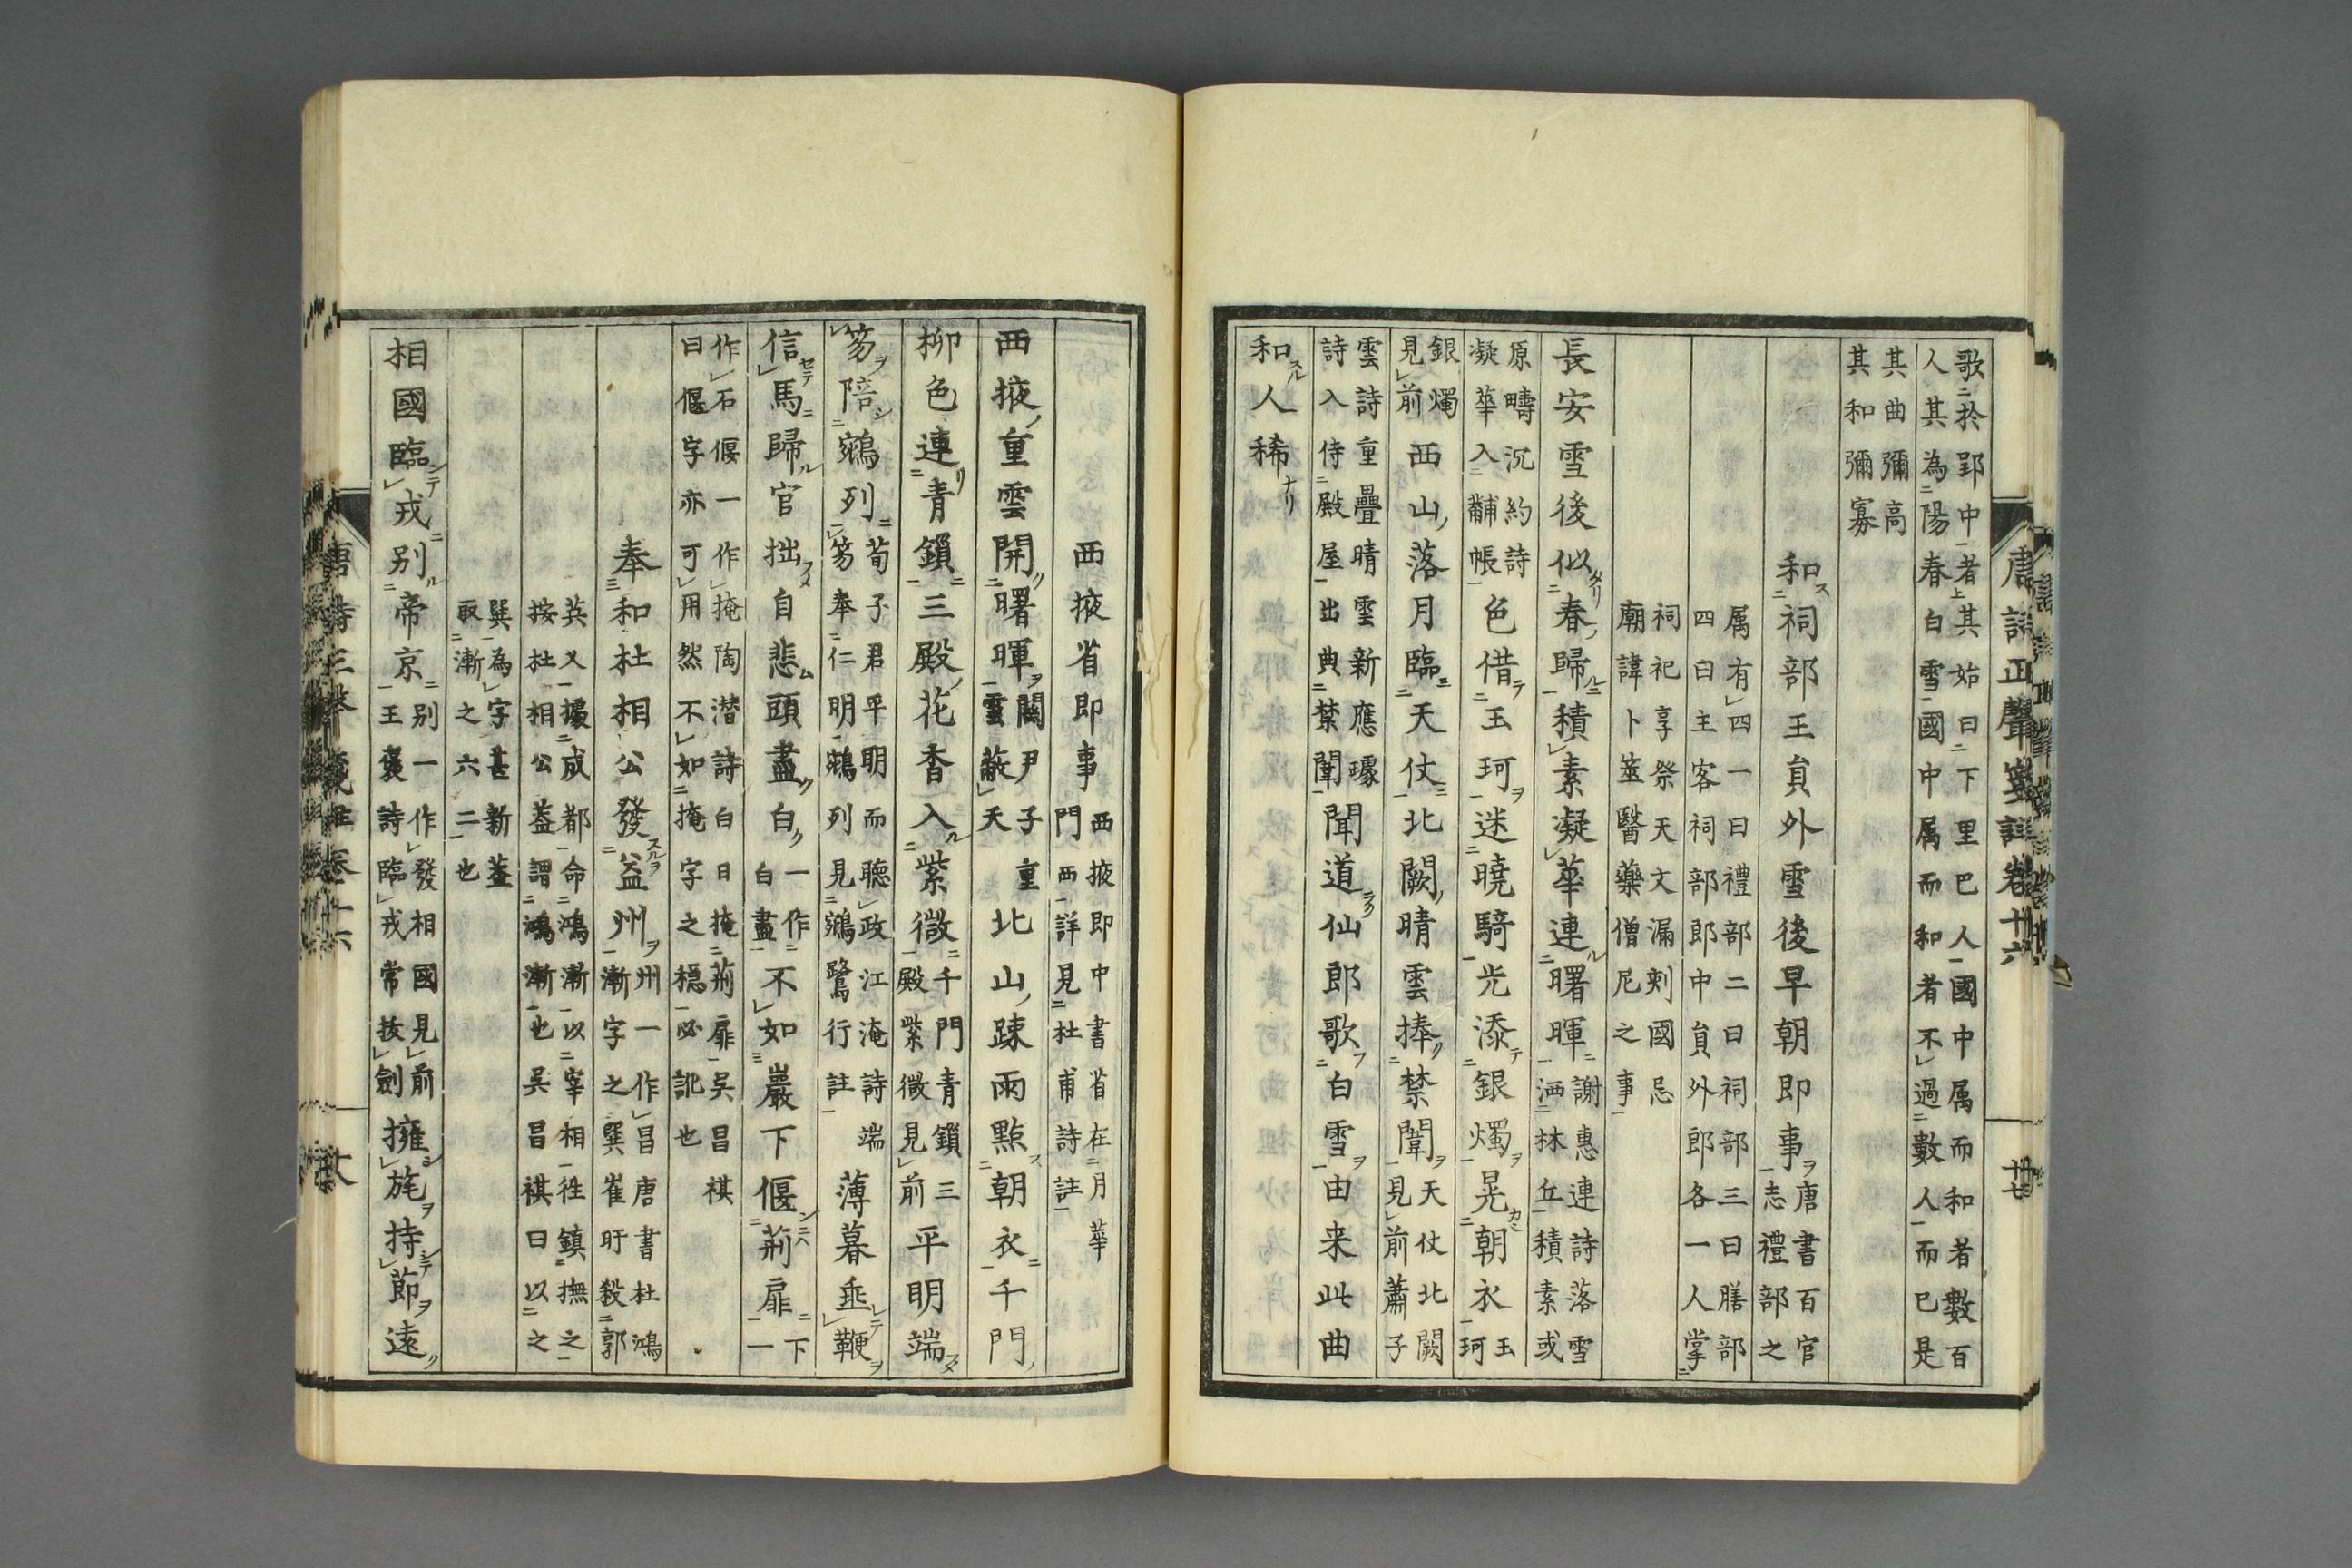 歌於郢中者其始曰下里巴人國中属而和者數百
人其為陽春白雪國中属而和者不過數人而已是
其曲彌高
其和彌寡
和祠部王貟外雪後早朝即事
唐書百官
志禮部之
属有四一曰禮部二曰祠部三曰膳部
四曰主客祠部郎中貟外郎各一人掌
祠祀享祭天文漏刻國忌
廟諱卜筮醫藥僧尼之事
長安雪後似春歸積素凝華連曙暉
謝惠連詩落雪
洒林丘積素或
原疇沉約詩
凝華入黼帳
色借玉珂迷曉騎光添銀燭晃朝衣
玉
珂
銀燭
見前
西山落月臨天仗北闕晴雲捧禁闈
天仗北闕
見前蕭子
雲詩重疊晴雲新應璩
詩入侍殿屋出典禁闈
聞道仙郎歌白雪由来此曲
和人稀
唐詩正聲箋註卷十六
十七
西掖省即事
西掖即中書省在月華
門西詳見杜甫詩註
西掖重雲開曙暉
關尹子重
雲蔽天
北山疎雨點朝衣千門
柳色連青鎖三殿花香入紫微
千門青鎖三
殿紫微見前
平明端
笏陪鵷列
荀子君平明而聽政江淹詩端
笏奉仁明鵷列見鵷鷺行註
薄暮垂鞭
信馬歸官拙自悲頭盡白
一作
白盡
不如巖下偃荊扉
下
一
作石偃一作掩陶潜詩白日掩荊扉吳昌祺
曰偃字亦可用然不如掩字之穩必訛也
奉和杜相公發益州
州一作昌唐書杜鴻
漸字之巽崔旰殺郭
英乂據成都命鴻漸以宰相徃鎮撫之
按杜相公盖謂鴻漸也吳昌祺曰以之
巽為字甚新盖
取漸之六二也
相國臨戎别帝京
别一作發相國見前
王褒詩臨戎常拔劍
擁旄持節遠